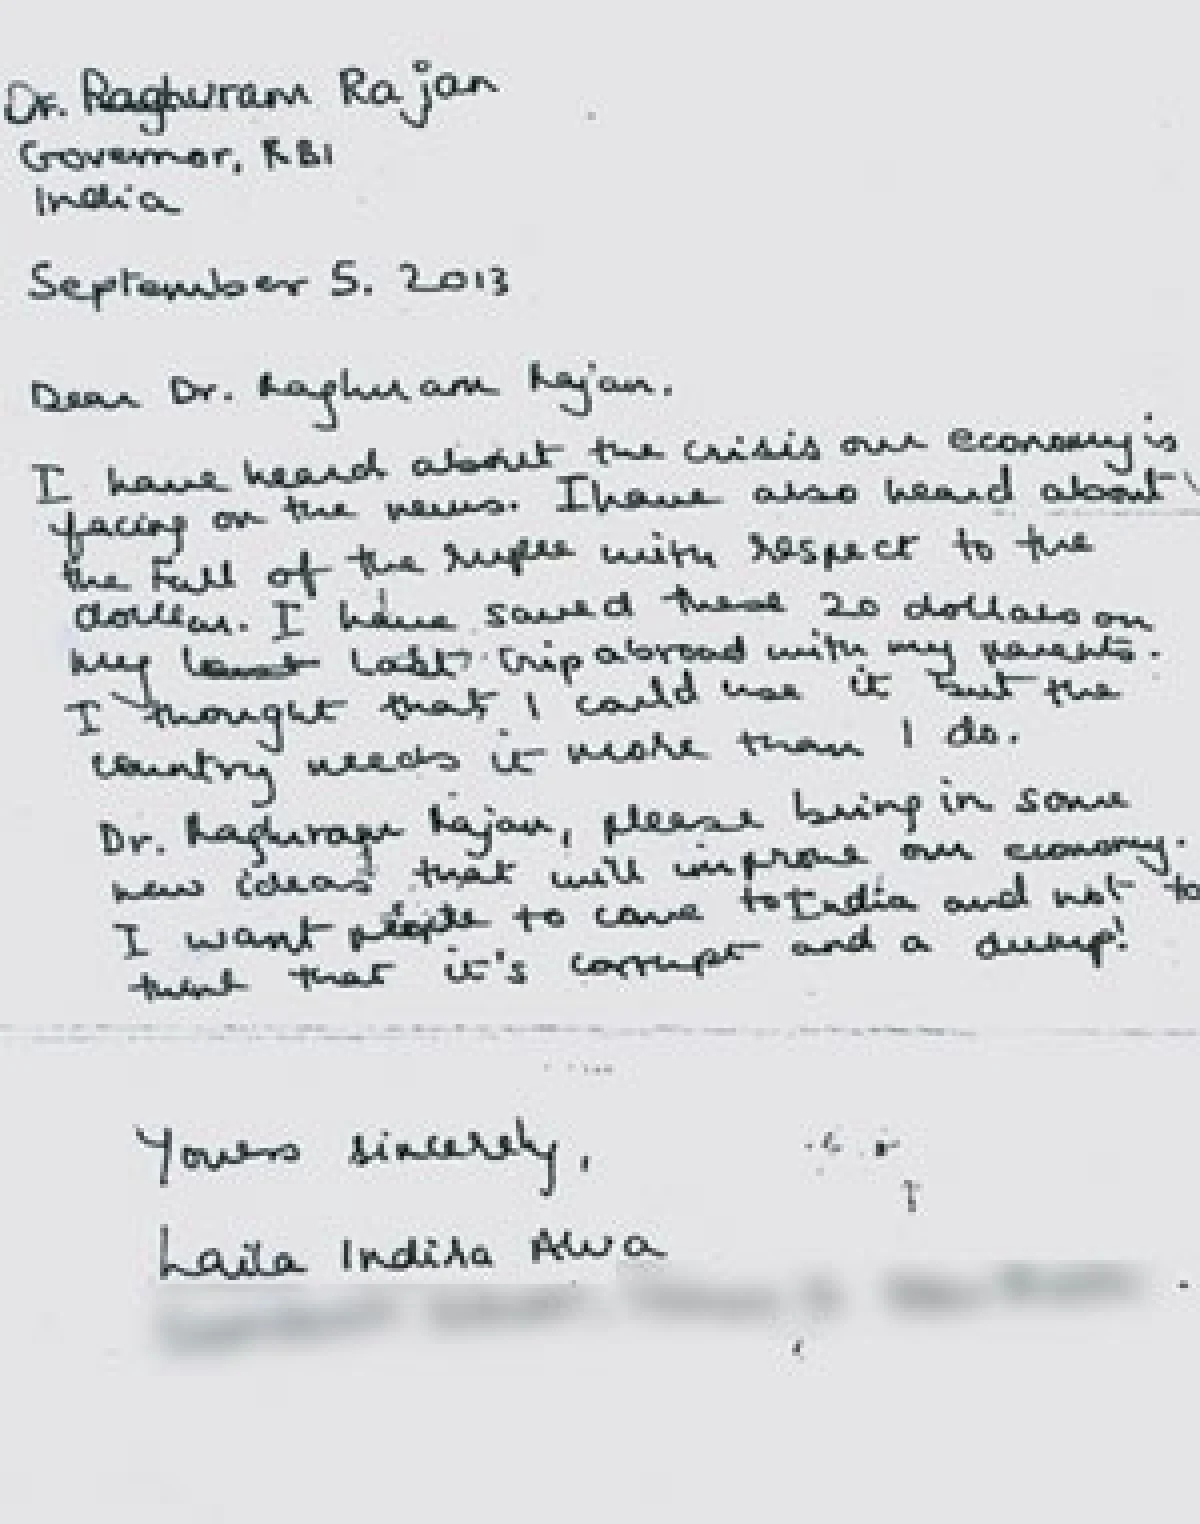 Dr. Raghuram Rajan
Governor, RBI
India
September 5. 2013
Dear Dr. Raghuram Rajan.
I have heard about the crisis our economy is
facing on the news. I have also heard about
the fall of the rupee with respect to the
dollar. I have saved these 20 dollars on
my last trip abroad with my parents.
I thought that I could use it but the
country needs it more than I do.
Dr. Raghuram Rajan, please bring in some
new ideas that will improve our economy.
I want people to come to India and not to
think that it's corrupt and a dump!
Yours sincerely,
Laila Indira Alva